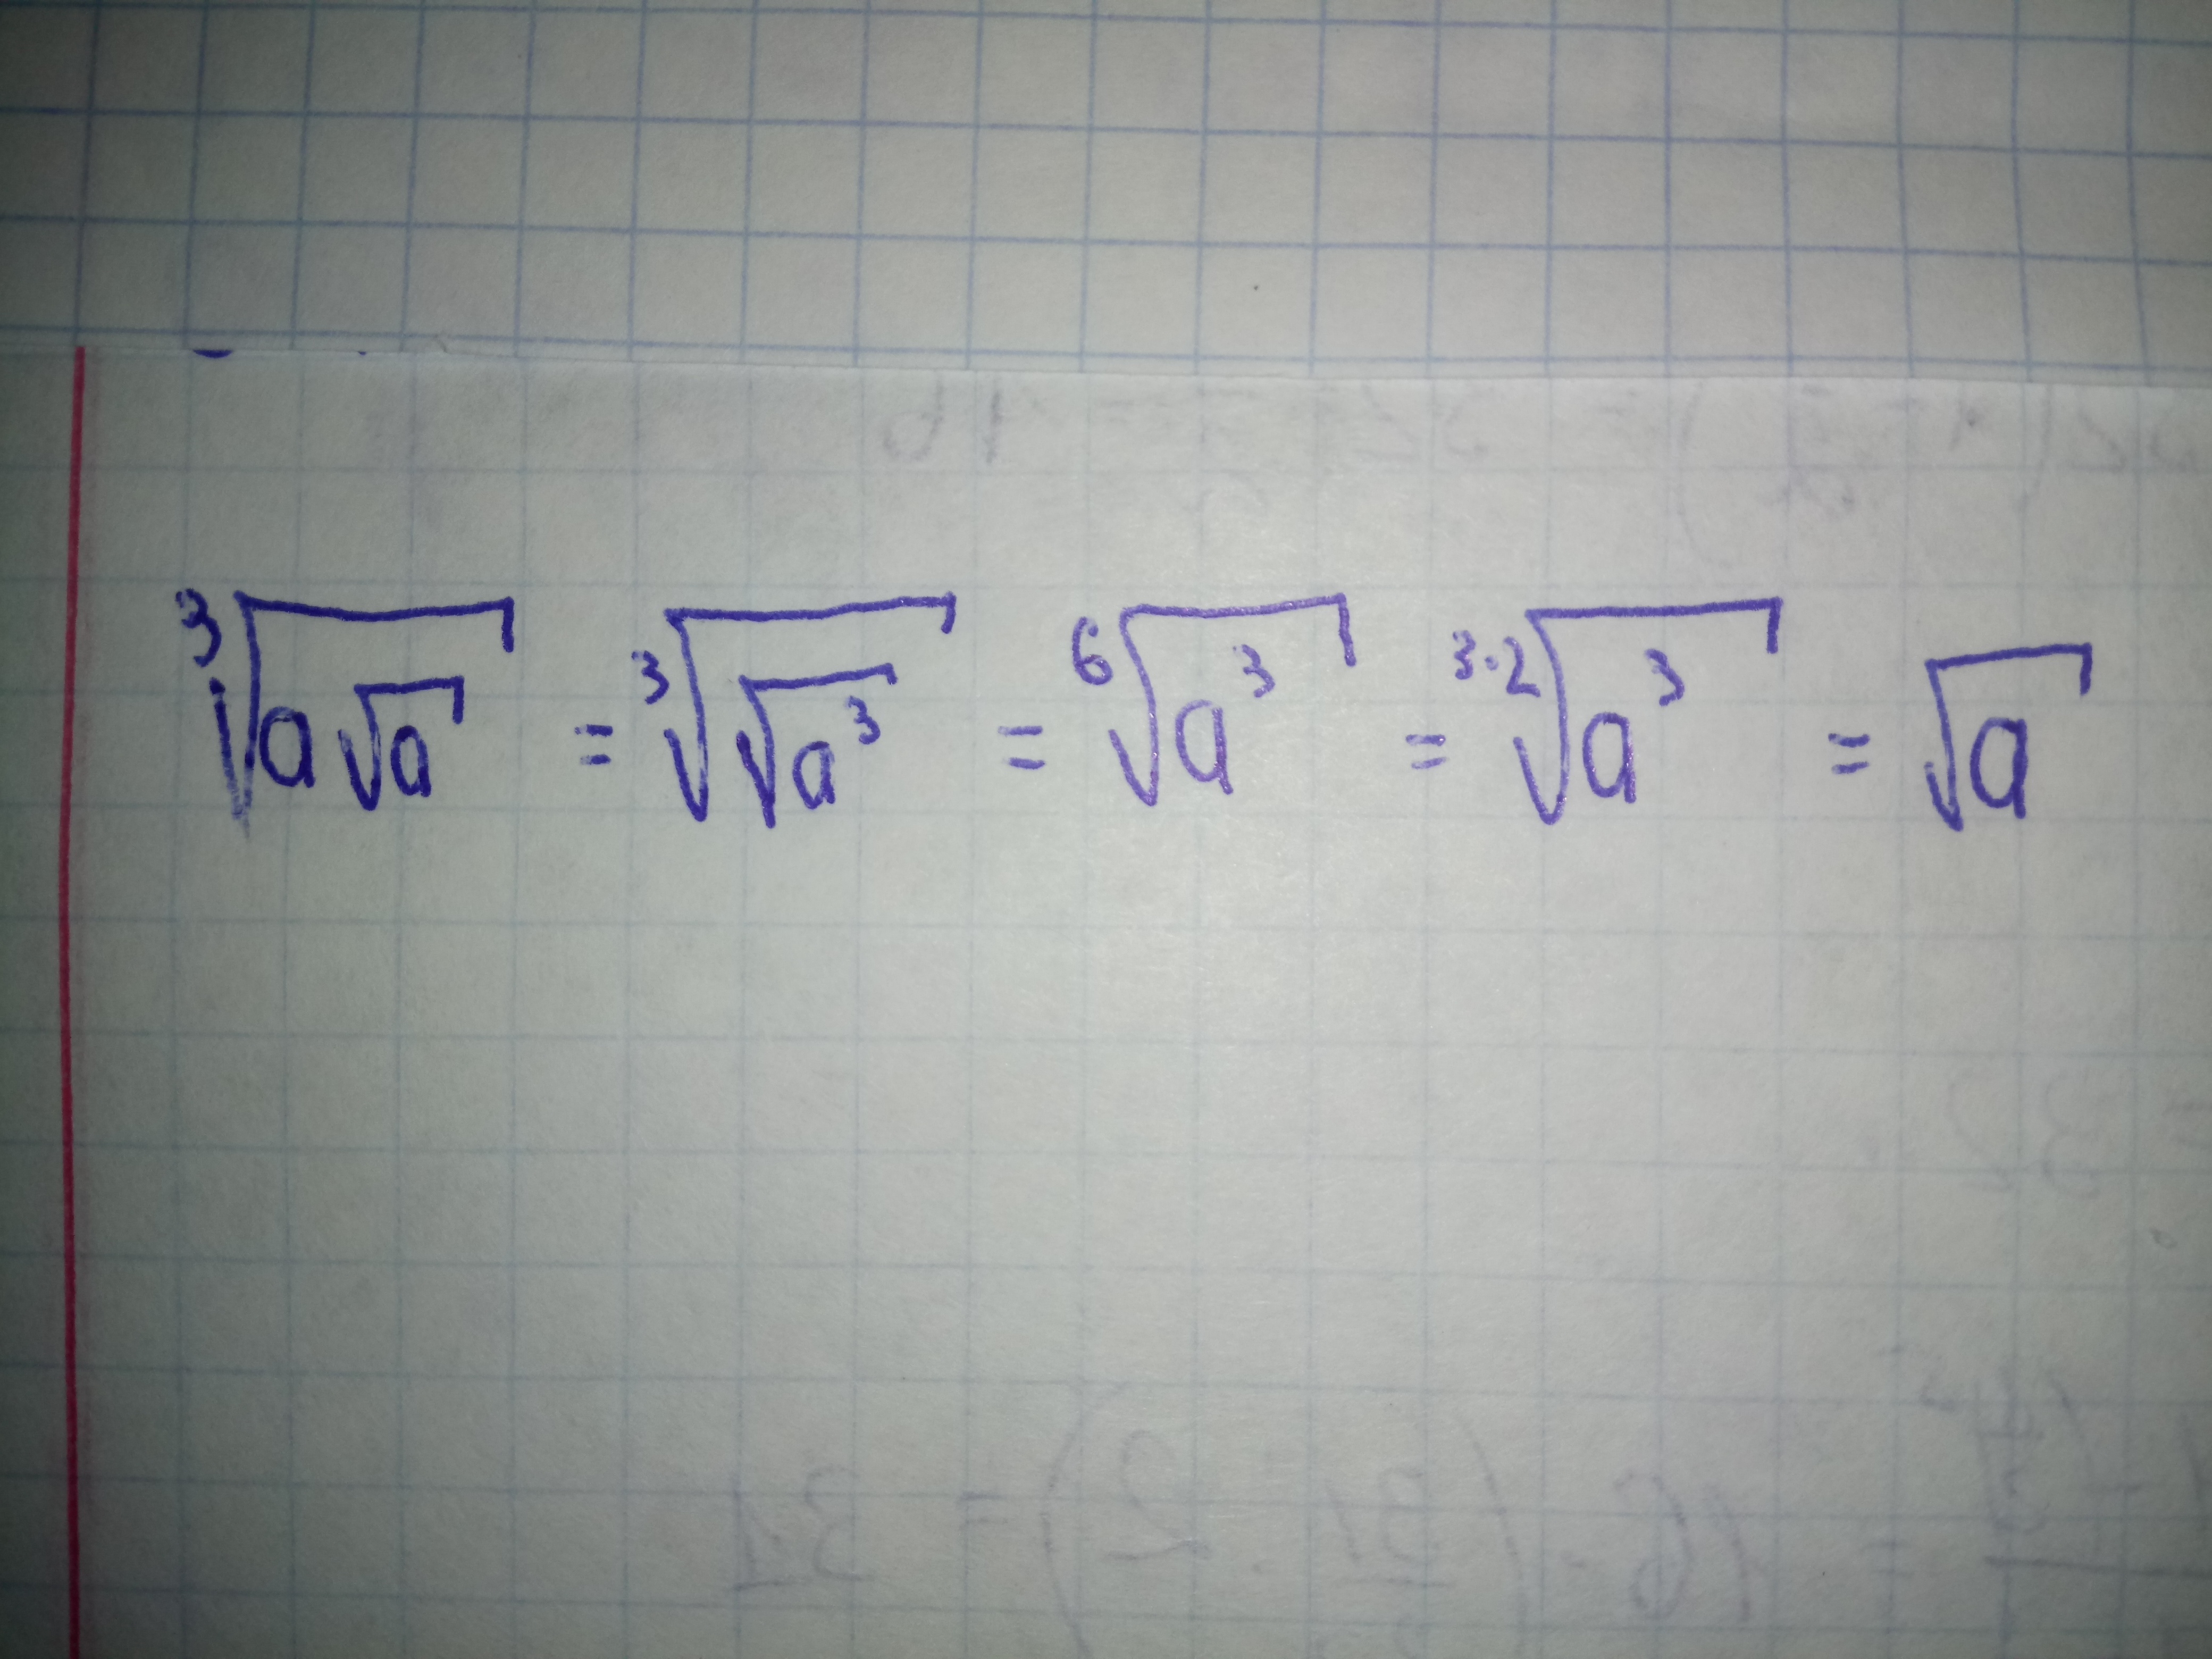 ∛(a√a) = ∛(√(a³)) = ⁶√(a³) = ³·²√(a³) = √a